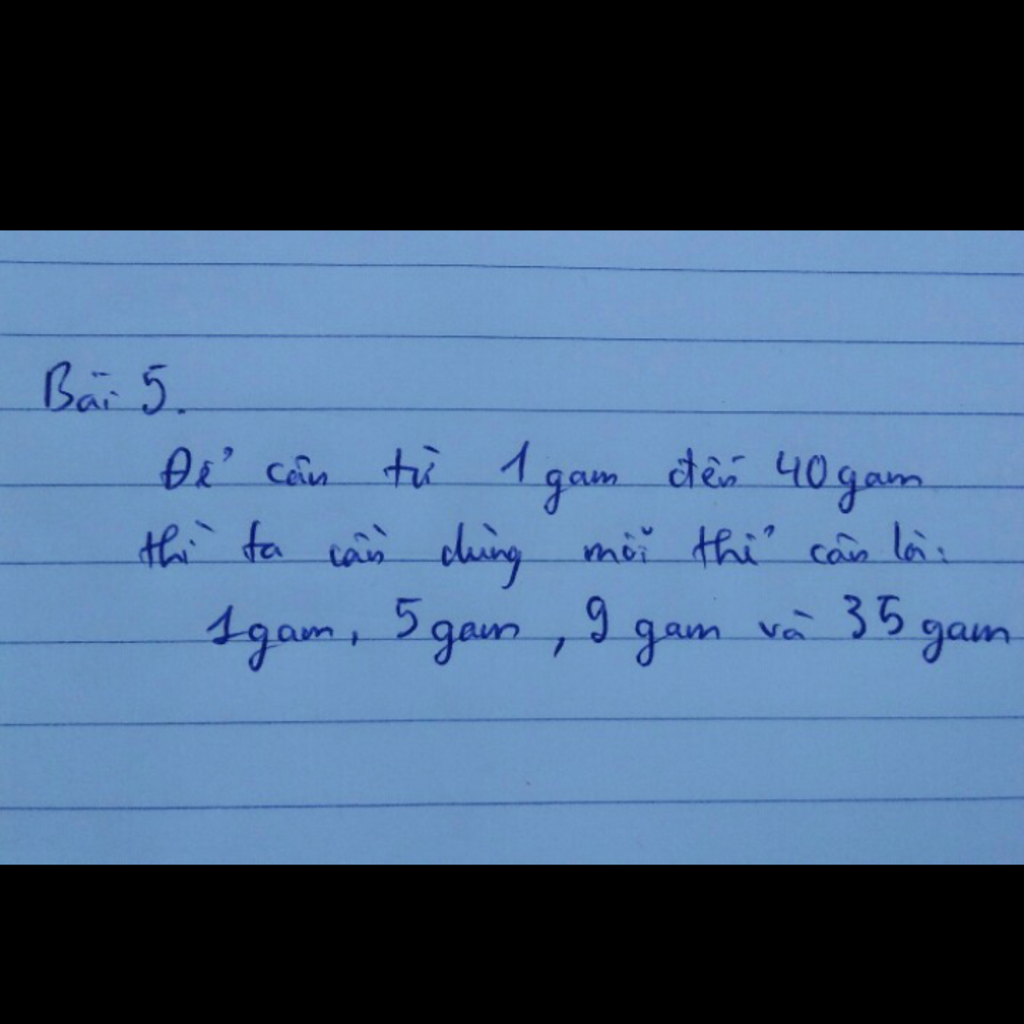 Bài 5.
Để cân từ 1 gam đến 40 gam
thì ta cần dùng mỗi thứ cân là:
1 gam, 5 gam, 9 gam và 35 gam